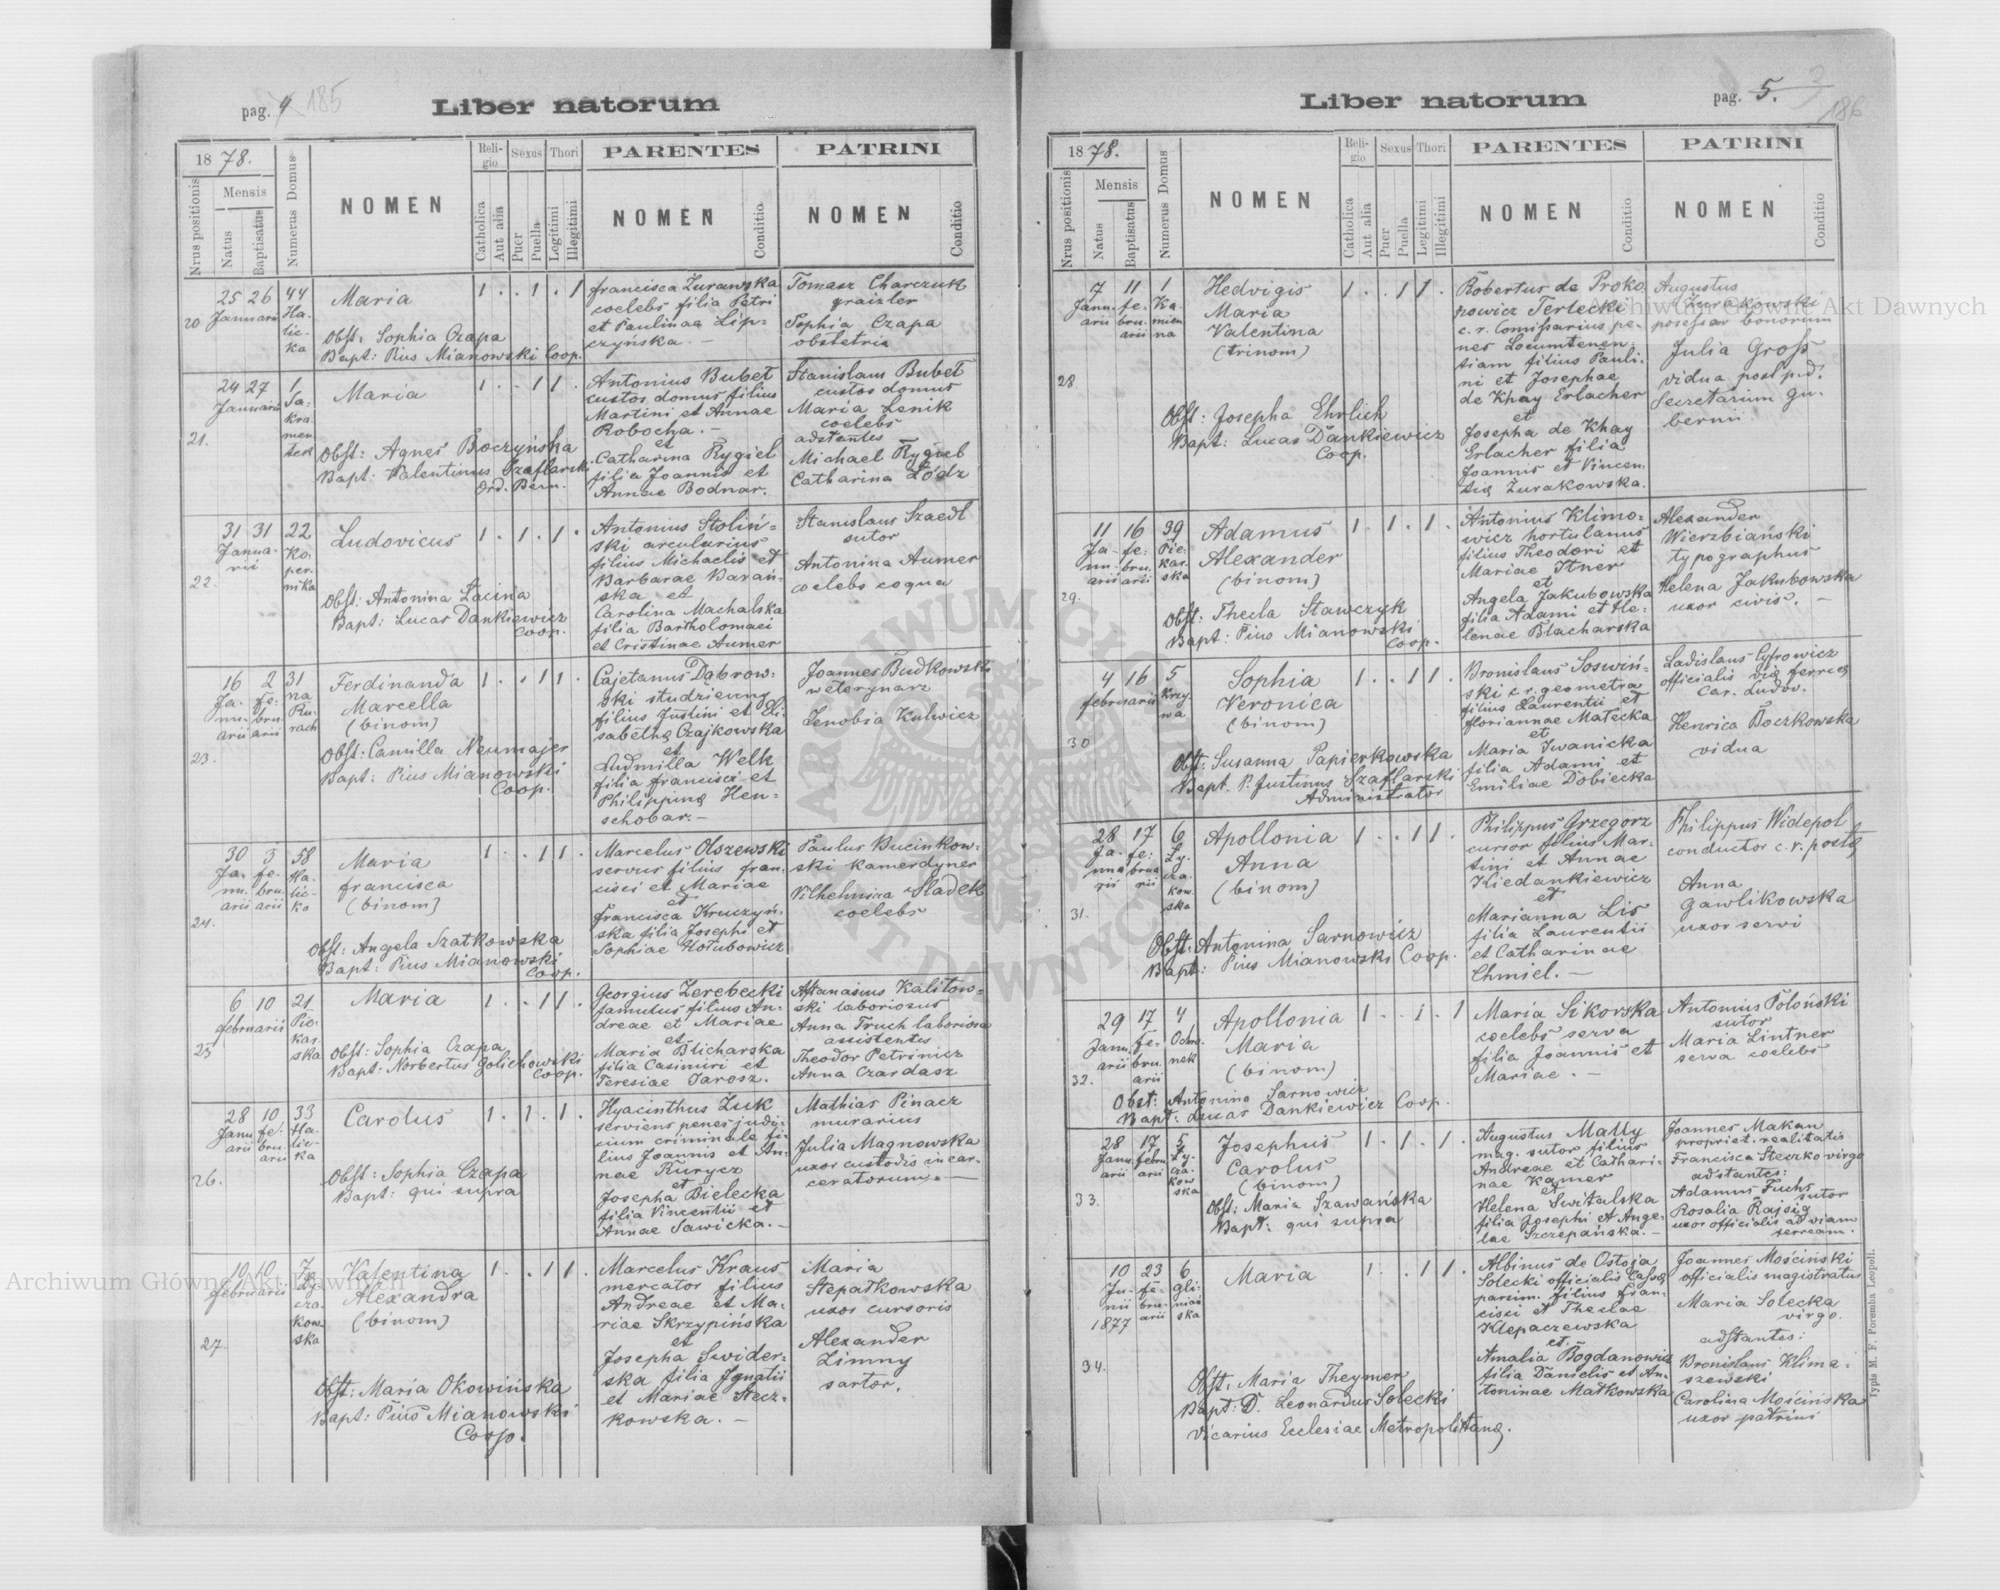 pag. 4 185
Liber natorum
1878.
Nrus positionis
Mensis
Natus
Baptisatus
Numerus Domus
NOMEN
Religio
Catholica
Aut alia
Sexus
Puer
Puella
Thori
Legitimi
Illegitimi
PARENTES
NOMEN
Conditio
PATRINI
NOMEN
Conditio
20
25 26
Januarii
44
Ha-
lic-
ka
Maria
Obst: Sophia Czapa
Bapt: Pius Mianowski Coop.
1 . . 1 . 1
Francisca Żurawska
coelebs filia Petri
et Paulinae Lip-
czyńska. -
Tomasz Charczuk
graizler
Sophia Czapa
obstetrix
21.
24 27
Januarii
1
Sa-
kra
men
tek
Maria
Obst: Agnes Boczyńska
Bapt: Valentinus Szaflarsk.
Ord. Bern.
1 . . 1 1 .
Antonius Bubet
custos domus filius
Martini et Annae
Robocha. -
et
Catharina Rygiel
filia Joannis et
Annae Bodnar.
Stanislaus Bubet
custos domus
Maria Lenik
coelebs
adstantes
Michael Rygiel
Catharina Łódz
22.
31 31
Janua-
rii
22
Ko-
per-
nika
Ludovicus
Obst: Antonina Łacina
Bapt: Lucas Dankiewicz
Coop.
1 . 1 . 1 .
Antonius Stoliń-
ski arcularius
filius Michaelis et
Barbarae Barań-
ska et
Carolina Machalska
filia Bartholomaei
et Cristinae Aumer
Stanislaus Szaedl
sutor
Antonina Aumer
coelebs coqua
23.
16 2
Ja- fe-
nu- bru
arii arii
31
na
Ru-
rach
Ferdinanda
Marcella
(binom)
Obst: Camilla Neumajer
Bapt: Pius Mianowski
Coop.
1 . . 1 1 .
Cajetanus Dąbrow-
ski studzienny
filius Justini et Eli-
sabethę Czajkowska
et
Ludmilla Welk
filia Francisci et
Philippinę Hen-
schobar. -
Joannes Budkowski
weterynarz
Zenobia Kulwicz
24.
30 3
Ja- fe-
nu. bru.
arii arii
58
Ha-
lic-
ka
Maria
Francisca
(binom)
Obst: Angela Szatkowska
Bapt: Pius Mianowski
Coop.
1 . . 1 1 .
Marcelus Olszewski
servus filius Fran-
cisci et Mariae
et
Francisca Kruczyń-
ska filia Josephi et
Sophiae Hołubowicz
Paulus Bucinkow-
ski kamerdyner
Vilhelmina Sladek
coelebs
25
6 10
februarii
21
Pie-
kar
ska
Maria
Obst: Sophia Czapa
Bapt: Norbertus Golichowski
Coop.
1 . . 1 1 .
Georgius Zerebecki
famulus filius An-
dreae et Mariae
et
Maria Blicharska
filia Casimiri et
Teresiae Jarosz.
Aftanasius Kalitow-
ski laboriosus
Anna Truch laboriosa
assistentes
Theodor Petrinicz
Anna Czardasz
26.
28 10
Janu fe-
arii bru
arii
33
Ha-
lic-
ka
Carolus
Obst: Sophia Czapa
Bapt: qui supra
1 . 1 . 1 .
Hyacinthus Żuk
serviens penes judi-
cium criminale fi-
lius Joannis et An-
nae Kurycz
et
Josepha Bielecka
filia Vincentii et
Annae Sawicka. -
Mathias Pinacz
murarius
Julia Magnowska
uxor custodis incar-
ceratorum. -
27.
10 10
februarii
7
Ły
cza-
kow
ska
Valentina
Alexandra
(binom)
Obst: Maria Okowińska
Bapt: Pius Mianowski
Coop.
1 . . 1 1 .
Marcelus Kraus
mercator filius
Andreae et Ma-
riae Skrzypińska
et
Josepha Swider-
ska filia Ignatii
et Mariae Stecz-
kowska. -
Maria
Stepatkowska
uxor cursoris
Alexander
Zimny
sartor.
pag. 5. 3
186
Liber natorum
1878.
Nrus positionis
Mensis
Natus
Baptisatus
Numerus Domus
NOMEN
Religio
Catholica
Aut alia
Sexus
Puer
Puella
Thori
Legitimi
Illegitimi
PARENTES
NOMEN
Conditio
PATRINI
NOMEN
Conditio
28
7 11
Janu- fe-
arii bru
arii
1
Ka-
mien
na
Hedvigis
Maria
Valentina
(trinom)
Obst: Josepha Ehrlich
Bapt: Lucas Dankiewicz
Coop.
1 . . 1 1 .
Robertus de Proko
powicz Terlecki
c. r. Comissarius pe-
nes Locumtenen-
tiam filius Pauli-
ni et Josephae
de Khay Erlacher
et
Josepha de Khay
Erlacher filia
Joannis et Vincen-
tię Żurakowska.
Augustus
Żurakowski
possessor bonorum
Julia Gross
vidua post p.d.
Secretarium gu-
bernii
29.
11 16
Ja- fe-
nu- bru.
arii arii
39
Pie-
kar-
ska
Adamus
Alexander
(binom)
Obst: Thecla Stawczyk
Bapt: Pius Mianowski
Coop.
1 . 1 . 1 .
Antonius Klimo-
wicz hortulanus
filius Theodori et
Mariae Itner
et
Angela Jakubowska
filia Adami et He-
lenae Blacharska
Alexander
Wierzbiański
typographus
Helena Jakubowska
uxor civis. -
30
4 16
februarii
5
Krzy-
wa
Sophia
Veronica
(binom)
Obst: Susanna Papierkowska
Bapt. P. Justinus Szaflarski
Administrator
1 . . 1 1 .
Bronislaus Soswiń-
ski c.r. geometra
filius Laurentii et
Floriannae Małecka
et
Maria Iwanicka
filia Adami et
Emiliae Dobiecka
Ladislaus Cyfrowicz
officialis vię ferreę
Car. Ludov.
Henrica Boczkowska
vidua
31.
28 17
Ja- fe-
nua bru
rii arii
6
Ły-
cza-
kow
ska
Apollonia
Anna
(binom)
Obst: Antonina Sarnowicz
Bapt: Pius Mianowski Coop.
1 . . 1 1 .
Philippus Grzegorz
cursor filius Mar-
tini et Annae
Kiedankiewicz
et
Marianna Lis
filia Laurentii
et Catharinae
Chmiel. -
Philippus Widepol
conductor c.r. postę
Anna
Gawlikowska
uxor servi
32.
29 17
Janu fe-
arii bru
arii
4
Ochro-
nek
Apollonia
Maria
(binom)
Obst: Antonina Sarnowicz
Bapt: Lucas Dankiewicz Coop.
1 . . 1 . 1
Maria Sikorska
coelebs serva
filia Joannis et
Mariae. -
Antonius Połoński
sutor
Maria Lintner
serva coelebs
33.
28 17
Janu febru
arii arii
5
Ły-
cza-
kow
ska
Josephus
Carolus
(binom)
Obst: Maria Szawańska
Bapt: qui supra
1 . 1 . 1 .
Augustus Mally
mag. sutor filius
Andreae et Cathari-
nae Kamer
et
Helena Switalska
filia Josephi et Ange-
lae Szczepańska. -
Joannes Makan
propriet. realitatis
Francisca Steczko virgo
adstantes:
Adamus Fuchs
sutor
Rosalia Rajsig
uxor officialis ad viam
ferream.
34.
10 23
Ju- fe-
nii bru-
1877 arii
6
Gli-
niań
ska
Maria
Obst: Maria Theymer
Bapt: D. Leonardus Solecki
Vicarius Ecclesiae Metropolitanę.
1 . . 1 1 .
Albinus de Ostoja
Solecki officialis Cassę
parsim. filius Fran-
cisci et Theclae
Klepaczewska
et
Amalia Bogdanowicz
filia Danielis et An-
toninae Małkowska
Joannes Mościński
officialis magistratus
Maria Solecka
virgo.
adstantes:
Bronislaus Klima-
szewski
Carolina Mościńska
uxor patrini
Typis M. F. Poremba Leopoli.
Archiwum Główne Akt Dawnych
Archiwum Główne Akt Dawnych
ARCHIWUM GŁÓWNE AKT DAWNYCH